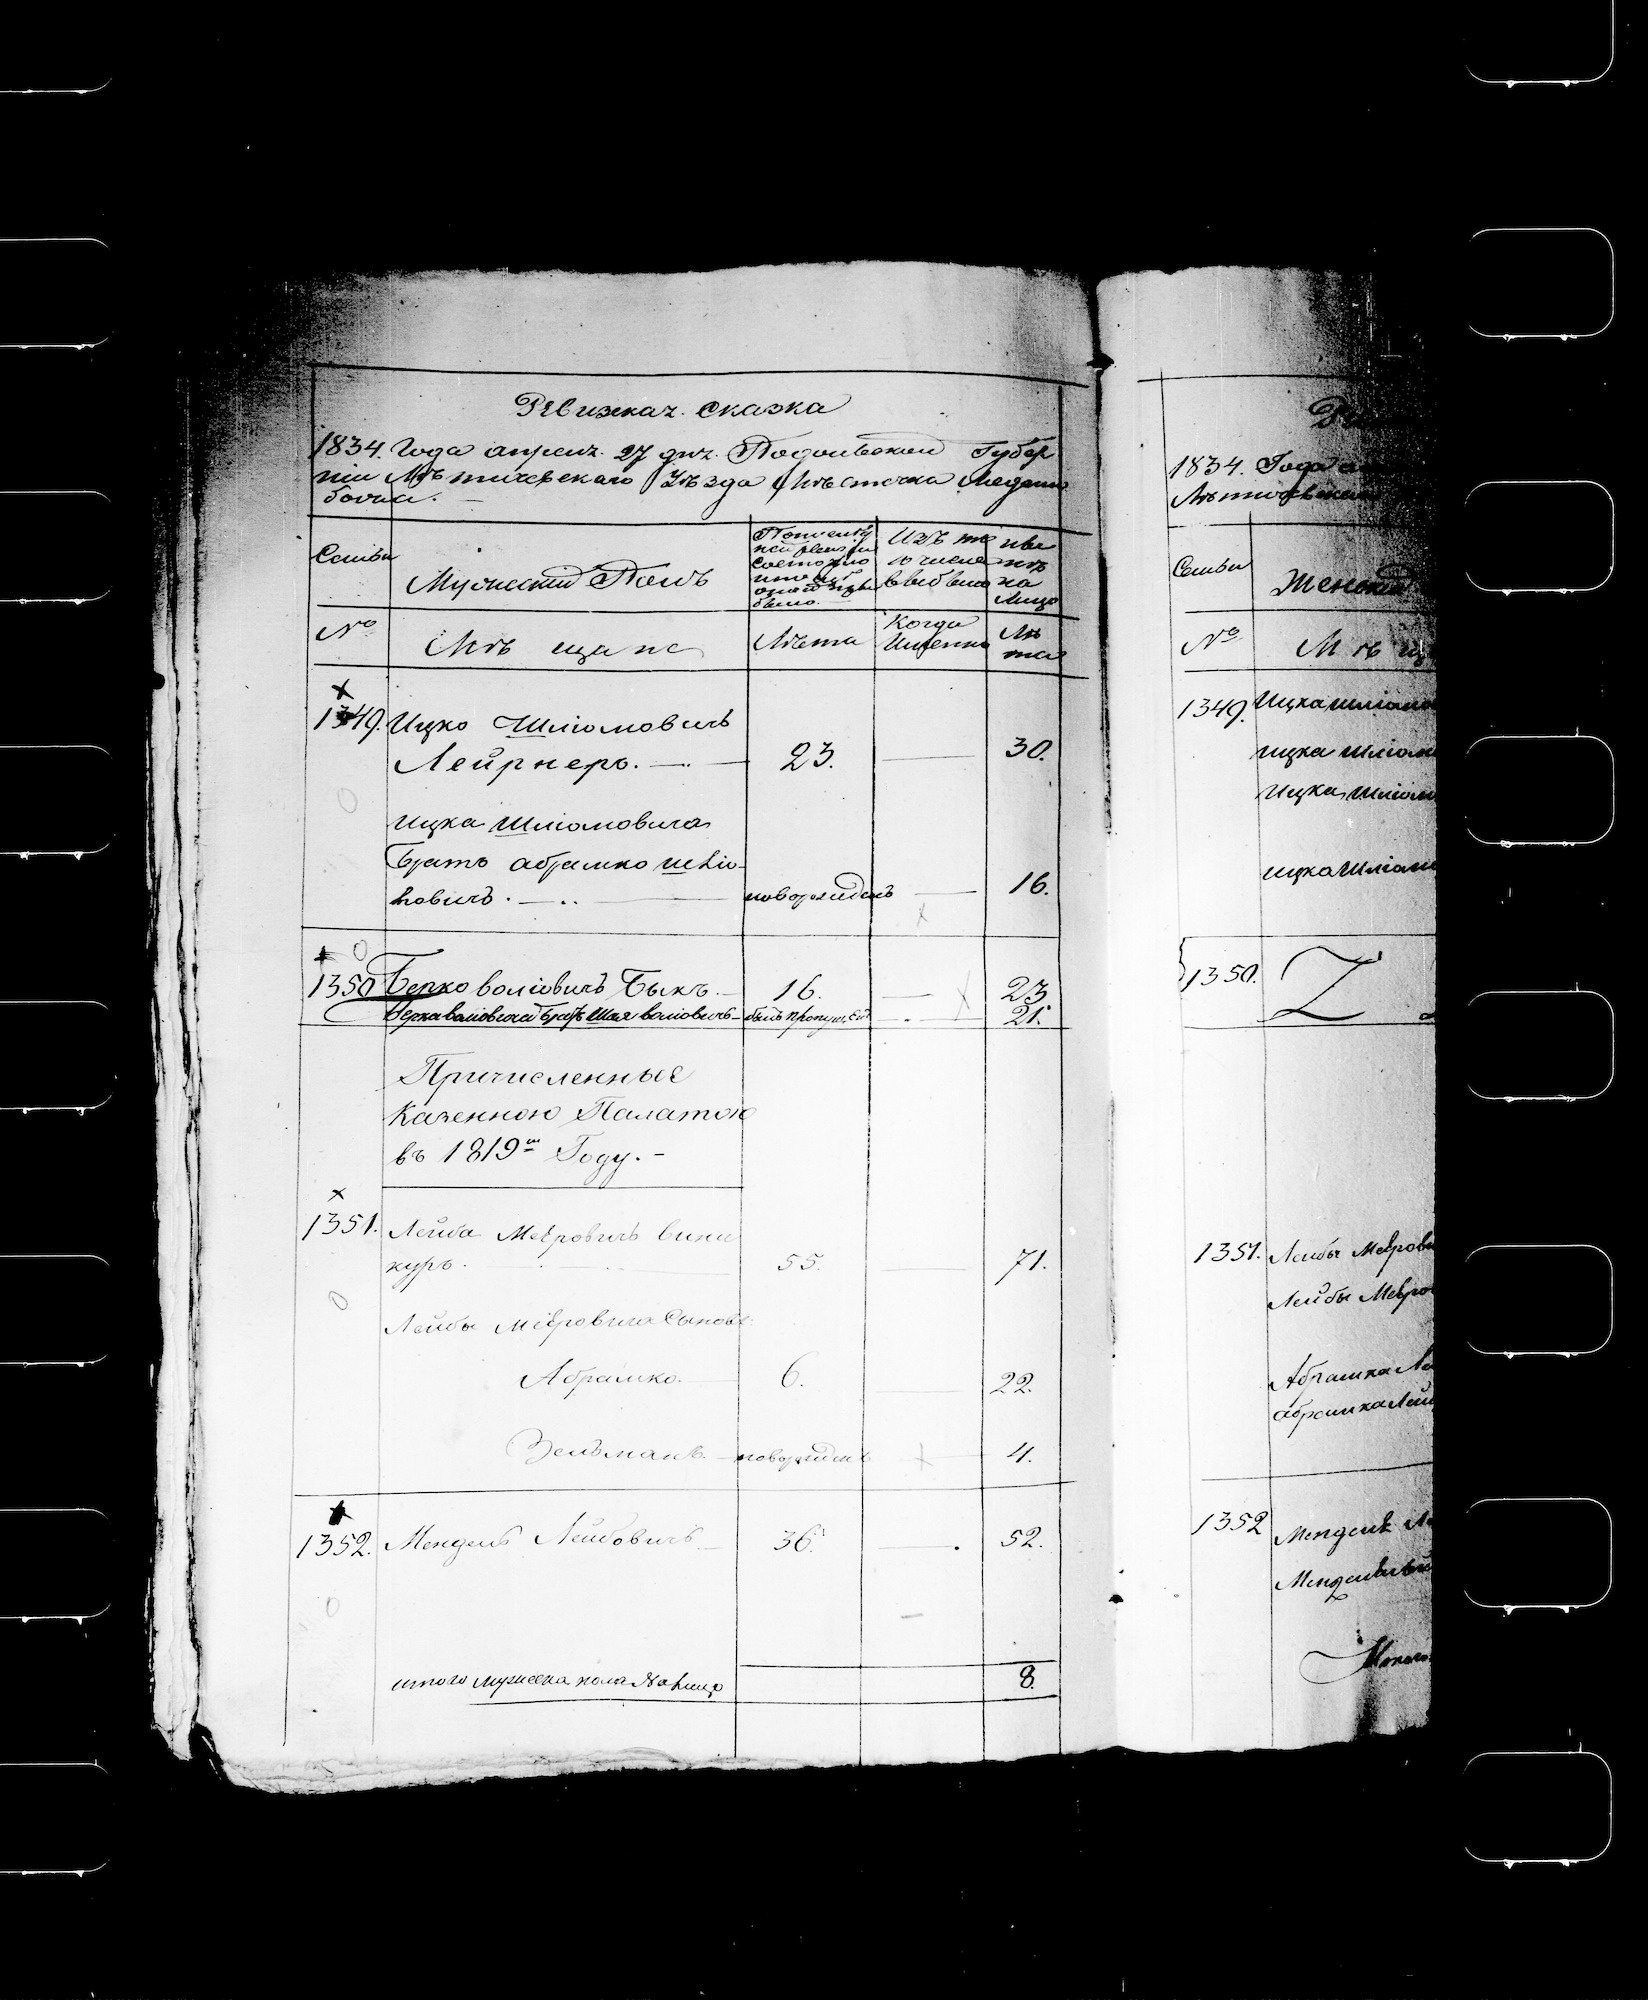 Ревизкая сказка
1834. Года апреля 27 дня. Подольской Губер
ніи Лѣтичевскаго Уѣзда Мѣстечка Меджи
божа.
Семьи
Мужеский Полъ
По последней ревизіи состояло и после оной прибыло
Изъ того числа выбыло
ныне на лицо
№
Мѣщане
Лѣта
Когда Именно
Лѣта
1349. Ицко Шліомовичъ
Лейрнеръ. 23. — 30.
Ицка Шліомовича
Братъ абрамко Шліо-
мовичъ. новорожденъ — 16.
1350 Берко Воліовичъ Быкъ. 16. — 23
Берка Воліовича братъ Шая Воліовичъ былъ пропущ. 21.
Причисленные
Казенною Палатою
въ 1819м Году.
1351. Лейба Меѣровичъ Вини
куръ. 55. — 71.
Лейбы Меѣровича Сынове
Абрамко. 6. 22.
Зельманъ. новорожденъ 4.
1352. Мендель Лейбовичъ 36. — 52.
итого мужеска пола на лицо 8.
1834. Года
Лѣтичевска
Семьи
Женск
№
Мѣщ
1349. Ицка Шліомо
Ицка Шліом
Ицка Шліом
Ицка Шліом
1350.
1351. Лейбы Меѣрови
Лейбы Меѣро
Абрамка Ле
абрамка Лей
1352